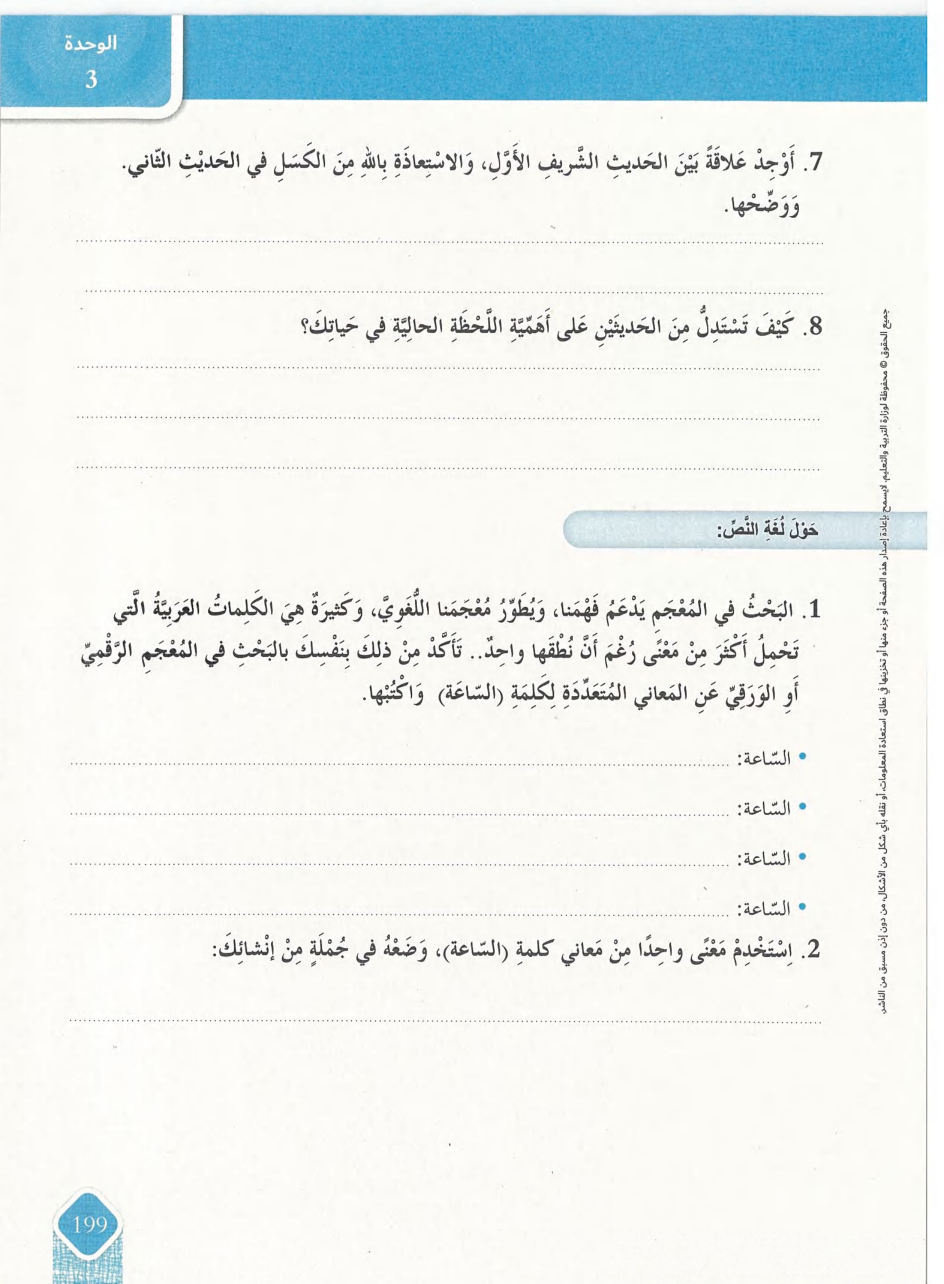 الوحدة
3
7. أَوْجِدْ عَلاقَةً بَيْنَ الحَديثِ الشَّريفِ الأَوَّلِ، وَالاسْتِعاذَةِ بِاللهِ مِنَ الكَسَلِ في الحَديْثِ الثّاني.
وَوَضِّحْها.
8. كَيْفَ تَسْتَدِلُّ مِنَ الحَديثَيْنِ عَلى أَهَمِّيَّةِ اللَّحْظَةِ الحاليَّةِ في حَياتِكَ؟
حَوْلَ لُغَةِ النَّصِّ:
1. البَحْثُ في المُعْجَمِ يَدْعَمُ فَهْمَنا، وَيُطَوِّرُ مُعْجَمَنا اللُّغَوِيَّ، وَكَثيرَةٌ هِيَ الكَلِماتُ العَرَبيَّةُ الَّتي
تَحْمِلُ أَكْثَرَ مِنْ مَعْنًى رُغْمَ أَنَّ نُطْقَها واحِدٌ.. تَأَكَّدْ مِنْ ذلِكَ بِنَفْسِكَ بالبَحْثِ في المُعْجَمِ الرَّقْمِيِّ
أَوِ الوَرَقِيِّ عَنِ المَعاني المُتَعَدِّدَةِ لِكَلِمَةِ (السّاعَة) وَاكْتُبْها.
• السّاعة:
• السّاعة:
• السّاعة:
• السّاعة:
2. اِسْتَخْدِمْ مَعْنًى واحِدًا مِنْ مَعاني كلمةِ (السّاعة)، وَضَعْهُ في جُمْلَةٍ مِنْ إنْشائِكَ:
جميع الحقوق © محفوظة لوزارة التربية والتعليم. لايسمح بإعادة إصدار هذه الصفحة أو جزء منها أو تخزينها في نطاق استعادة المعلومات، أو نقله بأي شكل من الأشكال، من دون إذن مسبق من الناشر.
199